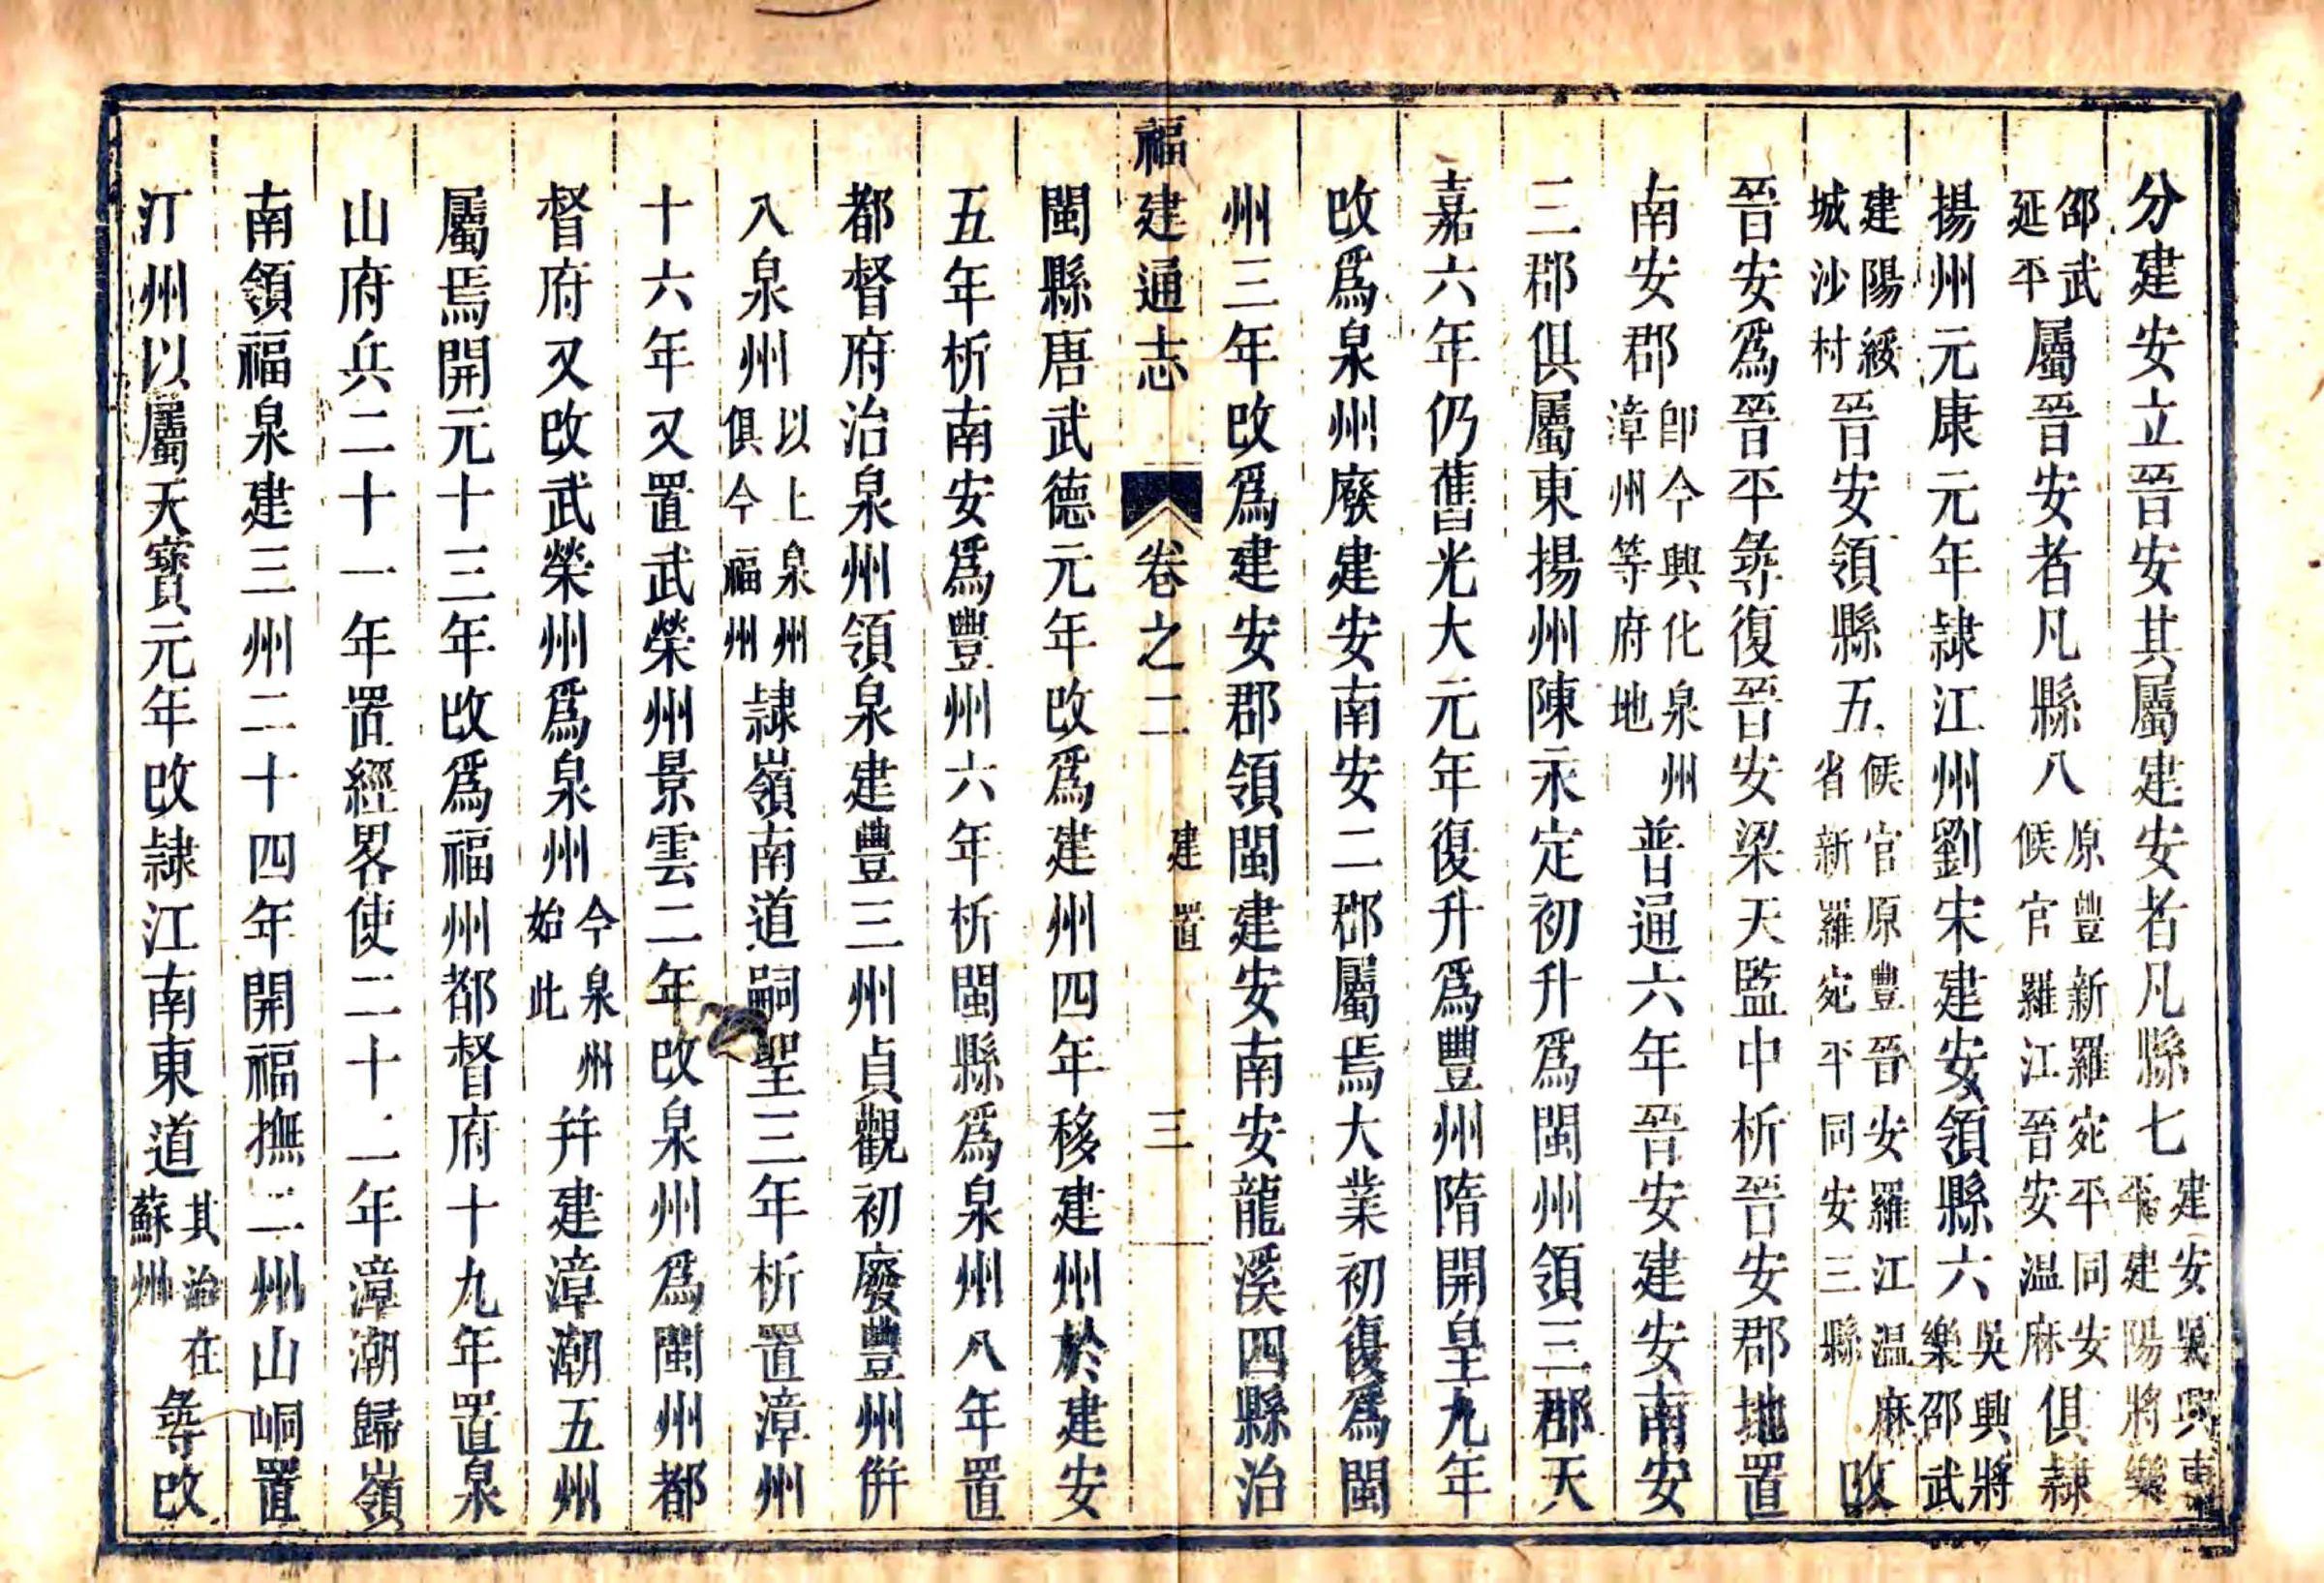 分建安立晉安其屬建安者凡縣七建安吳興東平建陽將樂
邵武延平屬晉安者凡縣八原豐新羅宛平同安候官羅江晉安温麻俱隷
揚州元康元年隷江州劉宋建安領縣六吳興將樂邵武
建陽綏城沙村晉安領縣五候官原豐晉安羅江温麻省新羅宛平同安三縣改
晉安爲晉平彝復晉安梁天監中析晉安郡地置
南安郡卽今興化泉州漳州等府地普通六年晉安建安南安
三郡俱屬東揚州陳永定初升爲閩州領三郡天
嘉六年仍舊光大元年復升爲豐州隋開皇九年
改爲泉州廢建安南安二郡屬焉大業初復爲閩
州三年改爲建安郡領閩建安南安龍溪四縣治
福建通志 卷之二 建置 三
閩縣唐武德元年改爲建州四年移建州於建安
五年析南安爲豐州六年析閩縣爲泉州八年置
都督府治泉州領泉建豐三州貞觀初廢豐州併
入泉州以上泉州俱今福州隷嶺南道嗣聖三年析置漳州
十六年又置武榮州景雲二年改泉州爲閩州都
督府又改武榮州爲泉州今泉州始此幷建漳潮五州
屬焉開元十三年改爲福州都督府十九年置泉
山府兵二十一年置經畧使二十二年漳潮歸嶺
南領福泉建三州二十四年開福撫二州山峒置
汀州以屬天寶元年改隷江南東道其治在蘇州彝改